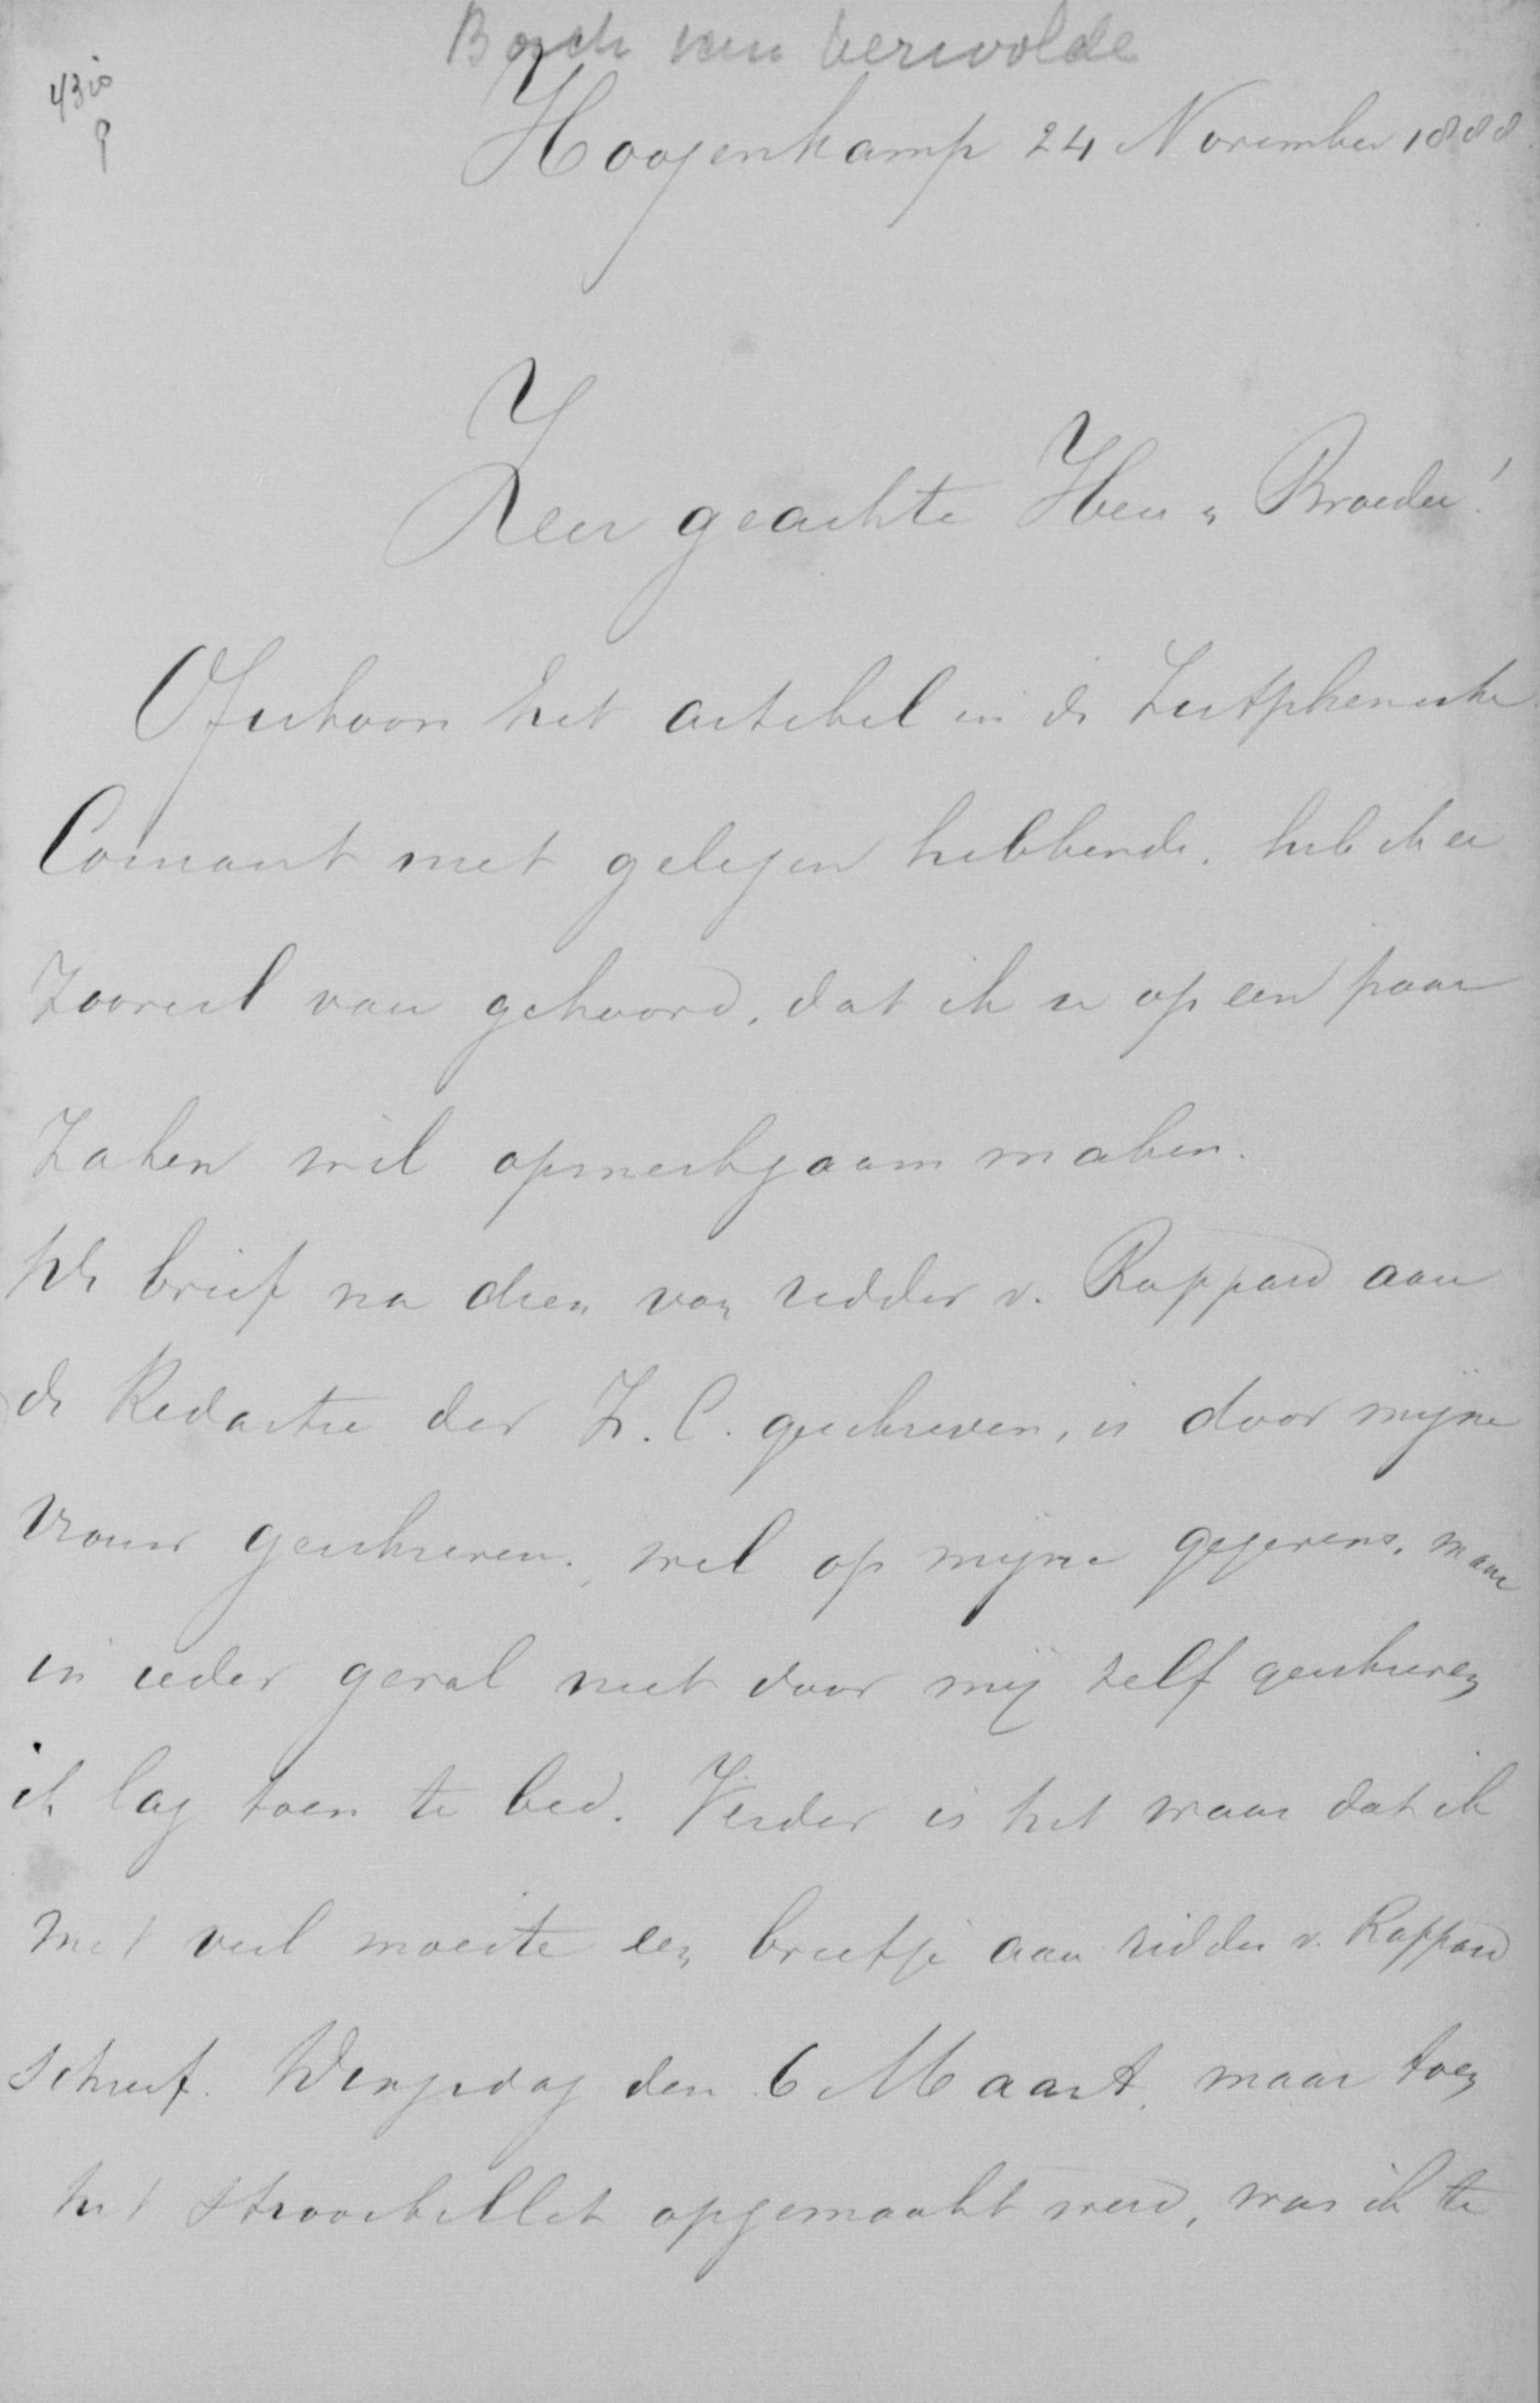 Bosch van Verwolde
43
Hoogenkamp 24 November 1888
Zeer geachte Heer & Broeder!
Ofschoon het artikel in de Zutphensche
Courant niet gelezen hebbende, heb ik er
zooveel van gehoord, dat ik u op een paar
zaken wil opmerkzaam maken.
De brief na dien van ridder v. Rappard aan
de Redactie der Z. C. geschreven, is door mijne
vrouw geschreven, wel op mijne gegevens, maar
in ieder geval niet door mij zelf geschreven
ik lag toen te bed. Verder is het waar dat ik
met veel moeite een briefje aan ridder v. Rappard
schreef. Dingsdag den 6 Maart, maar toen
het strooibillet opgemaakt werd, was ik te